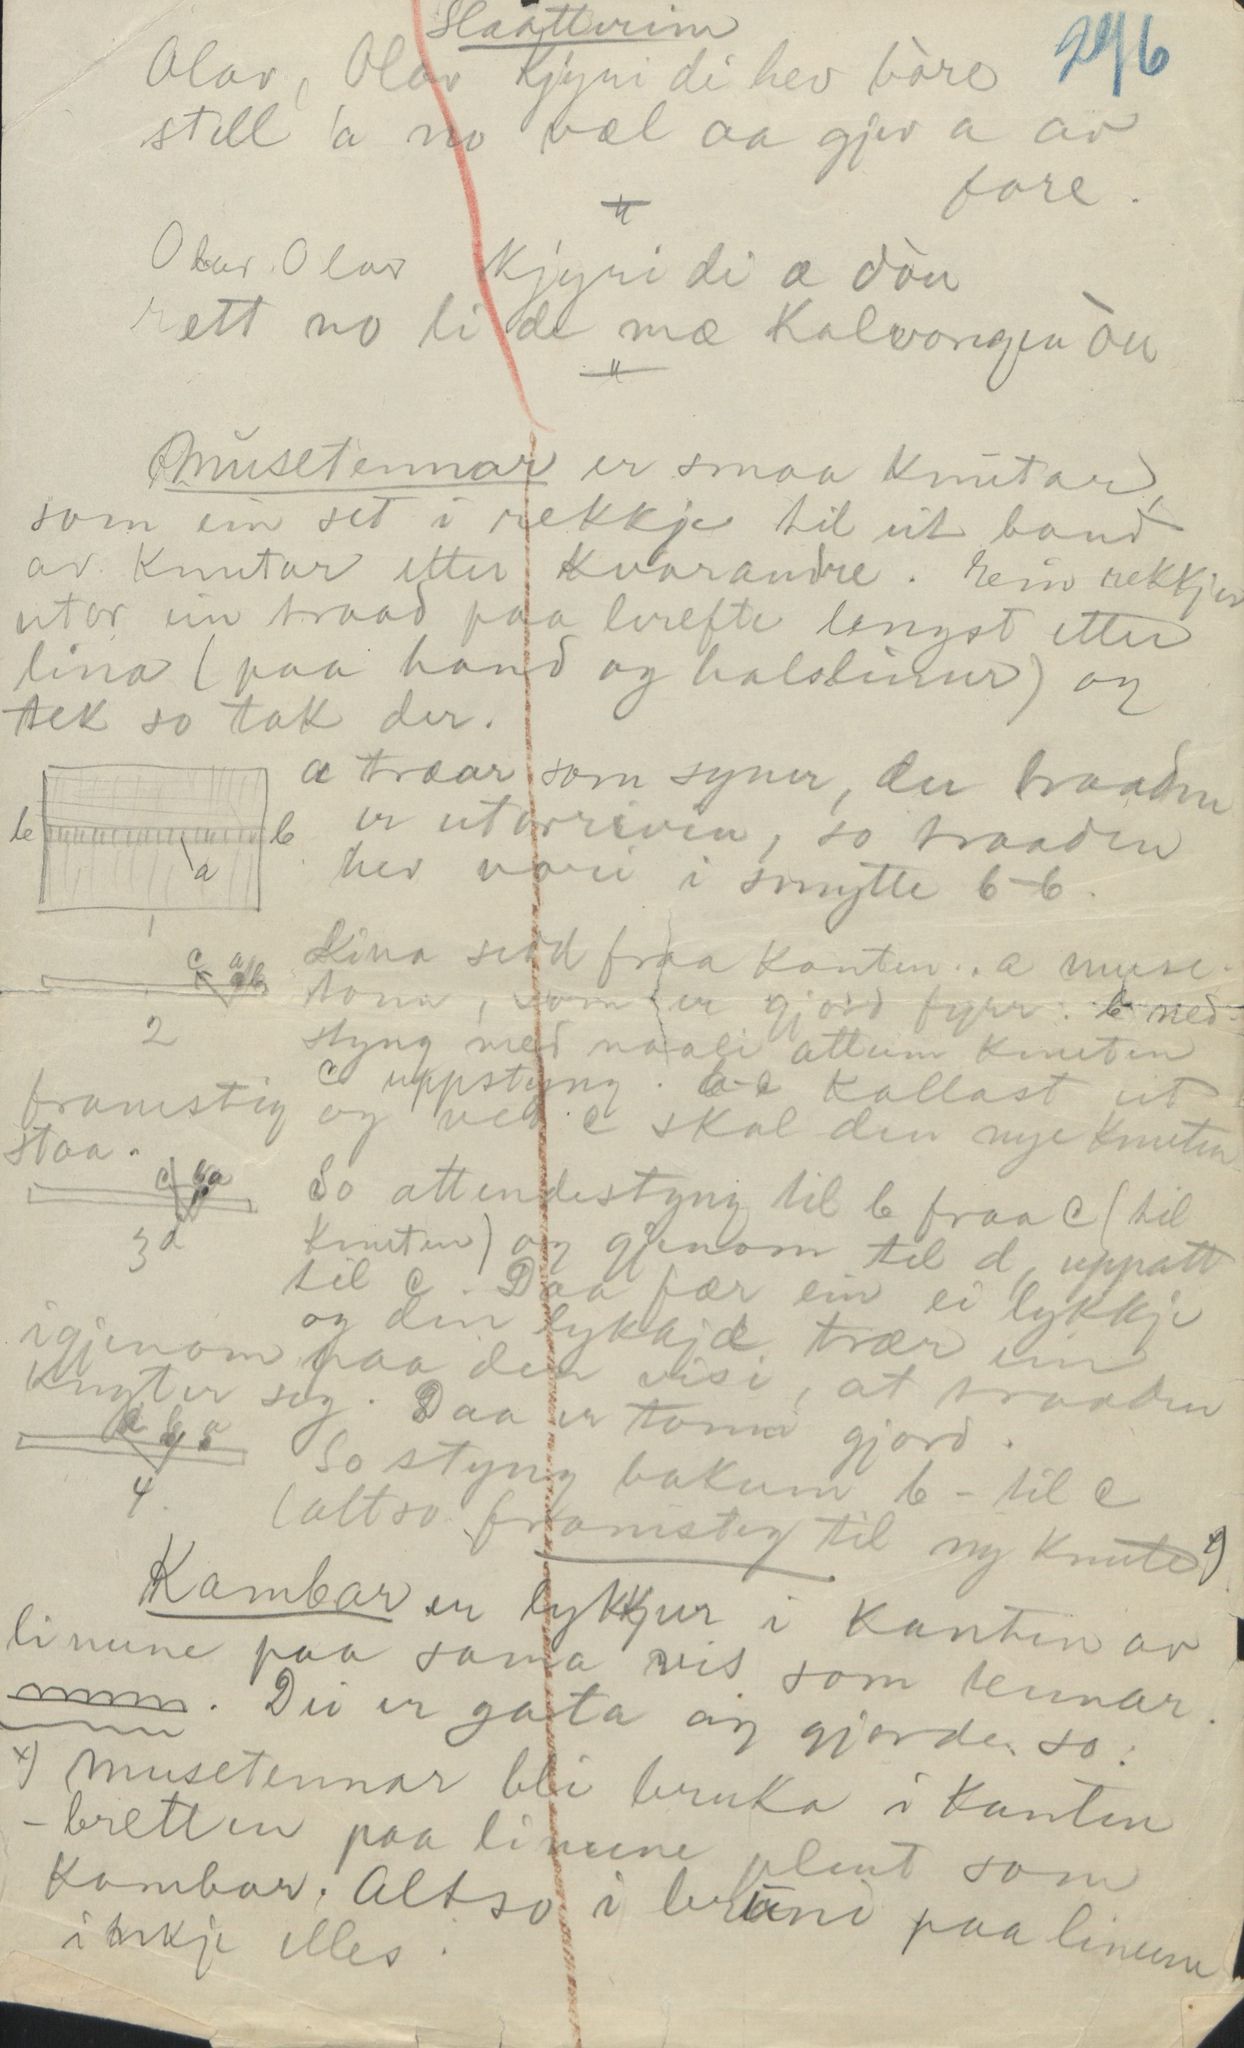 Slaatterim
29/6
Olav, Olav Kjyri di hev bòre
stell 'a no væl aa gjev a av
fore.
Olav. Olav Kjyri di æ dòu
rett no li de mæ Kalvongen òu
Musetennar er smaa knutar,
som ein set i rekkje til eit band
av knutar etter kvarandre. Ein rekkjer
utor ein traad paa lerefte langst etter
lina (paa hand og halslinur) og
tek so tak der.
a træar som syner, der traaden
er utorriven, so traaden
hev vori i smytte b-b.
b b
a
1
Lina sedd fraa kanten. a muse-
tonn, som er gjord fyrr. b ned-
styng med naali attum knuten
c uppstyng. b-c kallast eit
framstig og ved c skal den nye knuten
staa.
c a b
2
So attendestyng til b fraa c (til
knuten) og gjenom til d, uppatt
til c. Daa fær ein ei lykkje
og den lykkja trær ein
igjenom paa den visi, at traaden
knyter seg. Daa er tonni gjord.
c b a
3 d
So styng bakum b - til c
(altso framsteg til ny knute x)
4.
Kambar er lykkjur i kanten av
linune paa sama vis som tennar.
Dei er gata og gjorde so:
x) Musetennar bli bruka i kanten
- bretten paa linune plent som
Kambar. Altso i bruni paa linune
inkje elles.